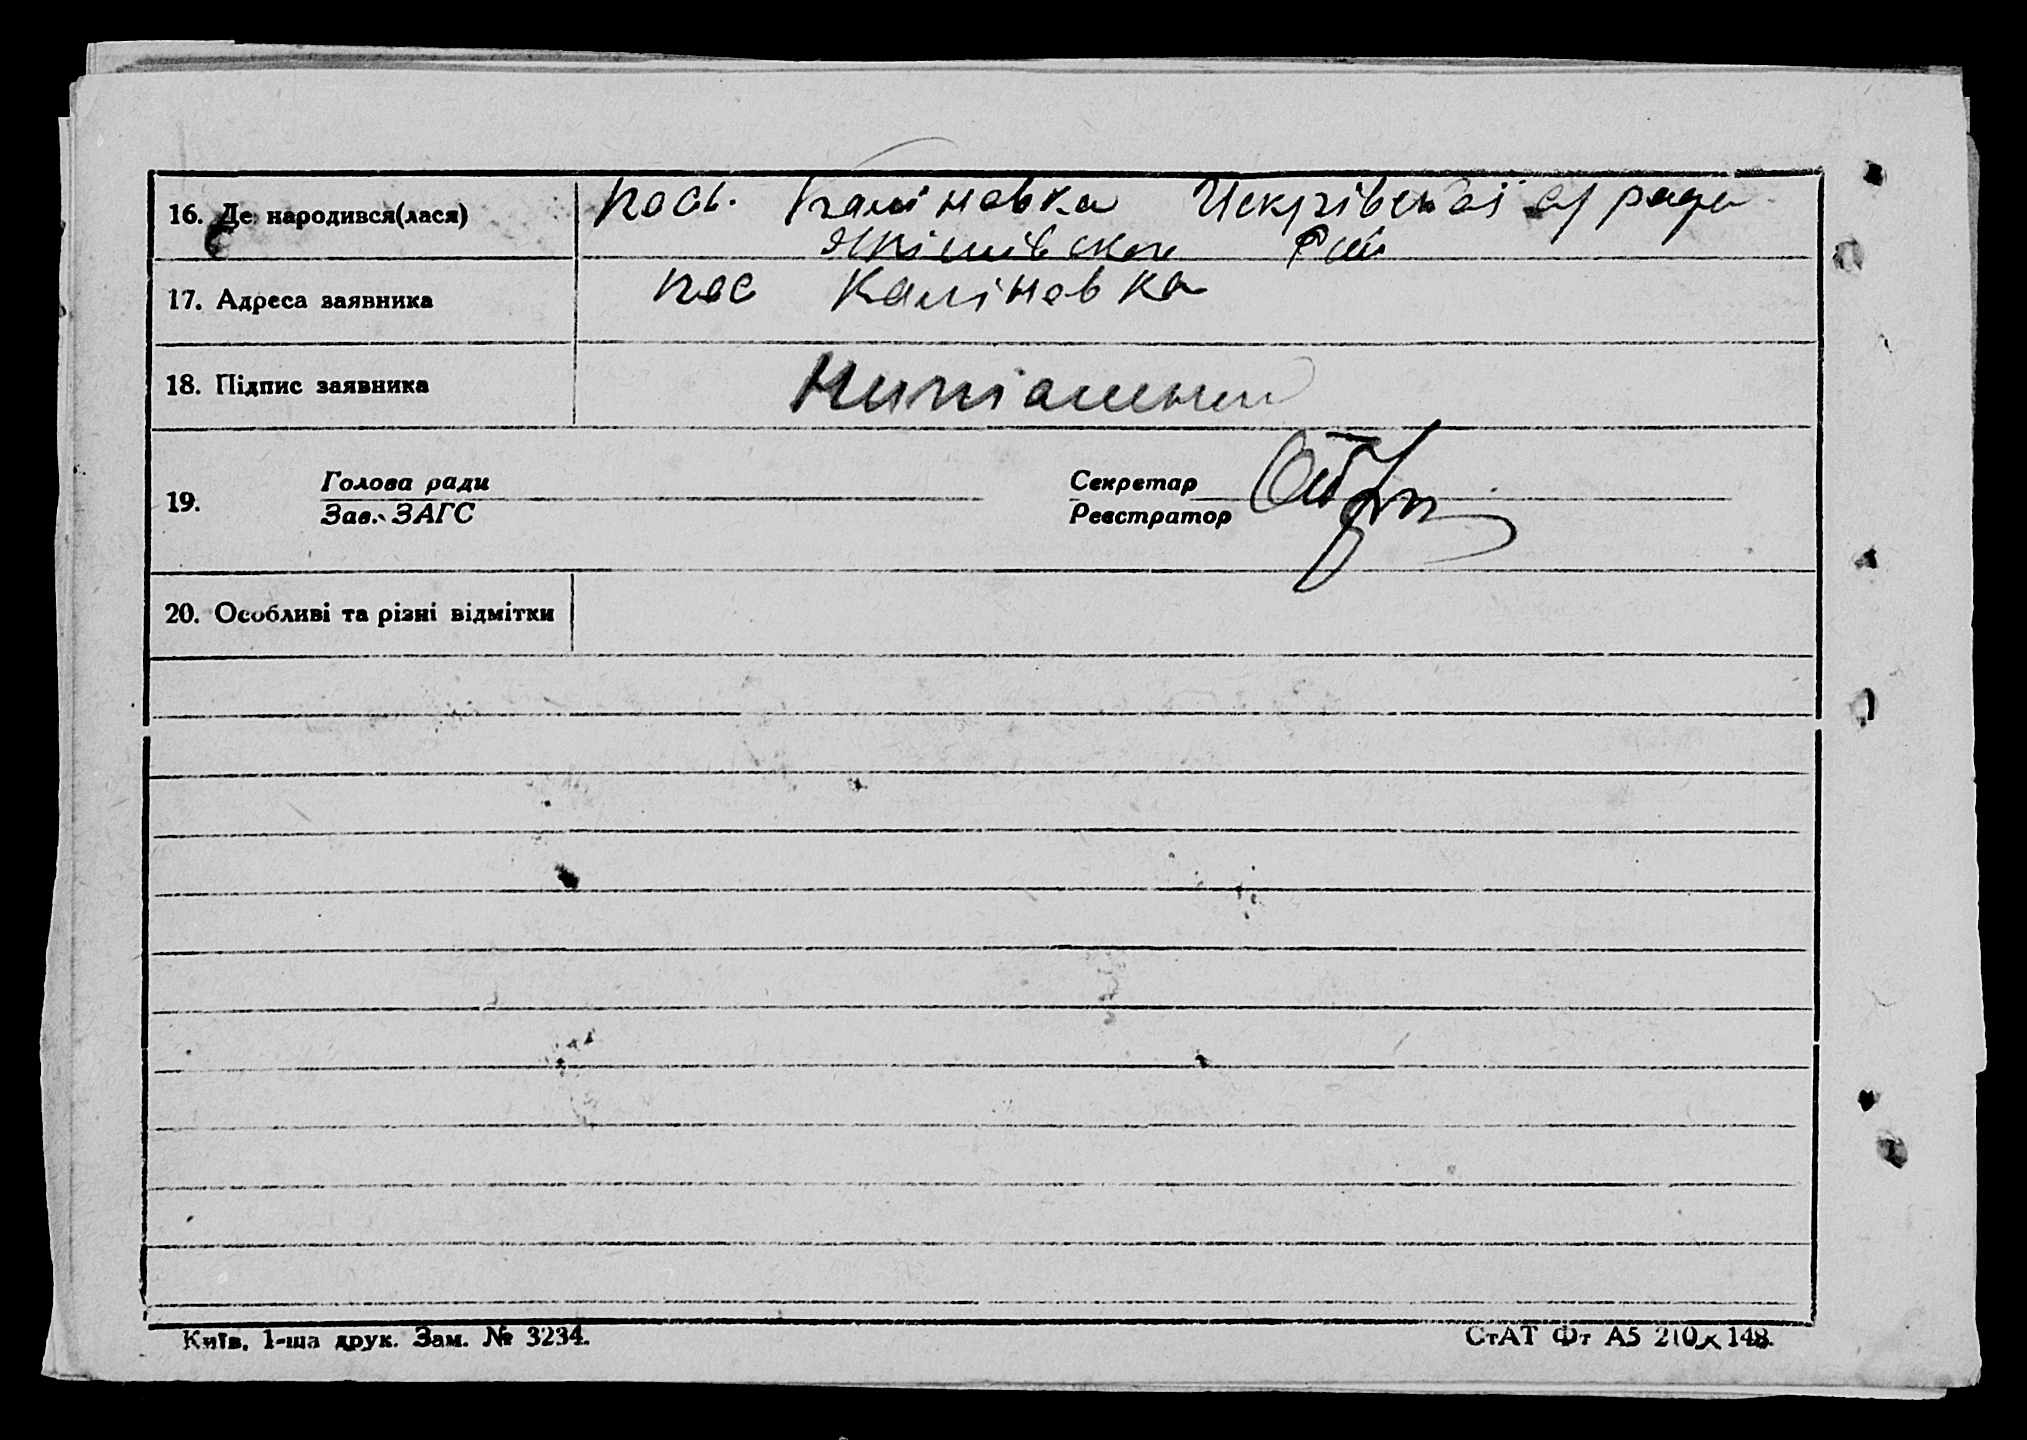 16. Де народився(лася) пось. Каліновка Искрівської с/ ради
17. Адреса заявника пос Каліновка
18. Підпис заявника
19. Голова ради Секретар
Зав. ЗАГС Реєстратор
20. Особливі та різні відмітки
Київ, 1-ша друк. Зам. № 3234. СтАТ Фт А5 210×148.